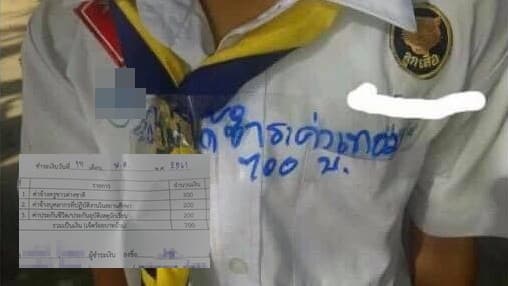 ลูกเสือ
ชำระค่าเทอม
700 บ.
ชำระเงินวันที่ 17 เดือน พ.ค 2561
ที่ รายการ จำนวนเงิน
1. ค่าจ้างครูชาวต่างชาติ 300
2. ค่าจ้างบุคลากรที่ปฏิบัติงานในสถานศึกษา 200
3. ค่าประกันชีวิต/ประกันอุบัติเหตุนักเรียน 200
รวมเป็นเงิน (เจ็ดร้อยบาทถ้วน) 700
ผู้ชำระเงิน ลงชื่อ